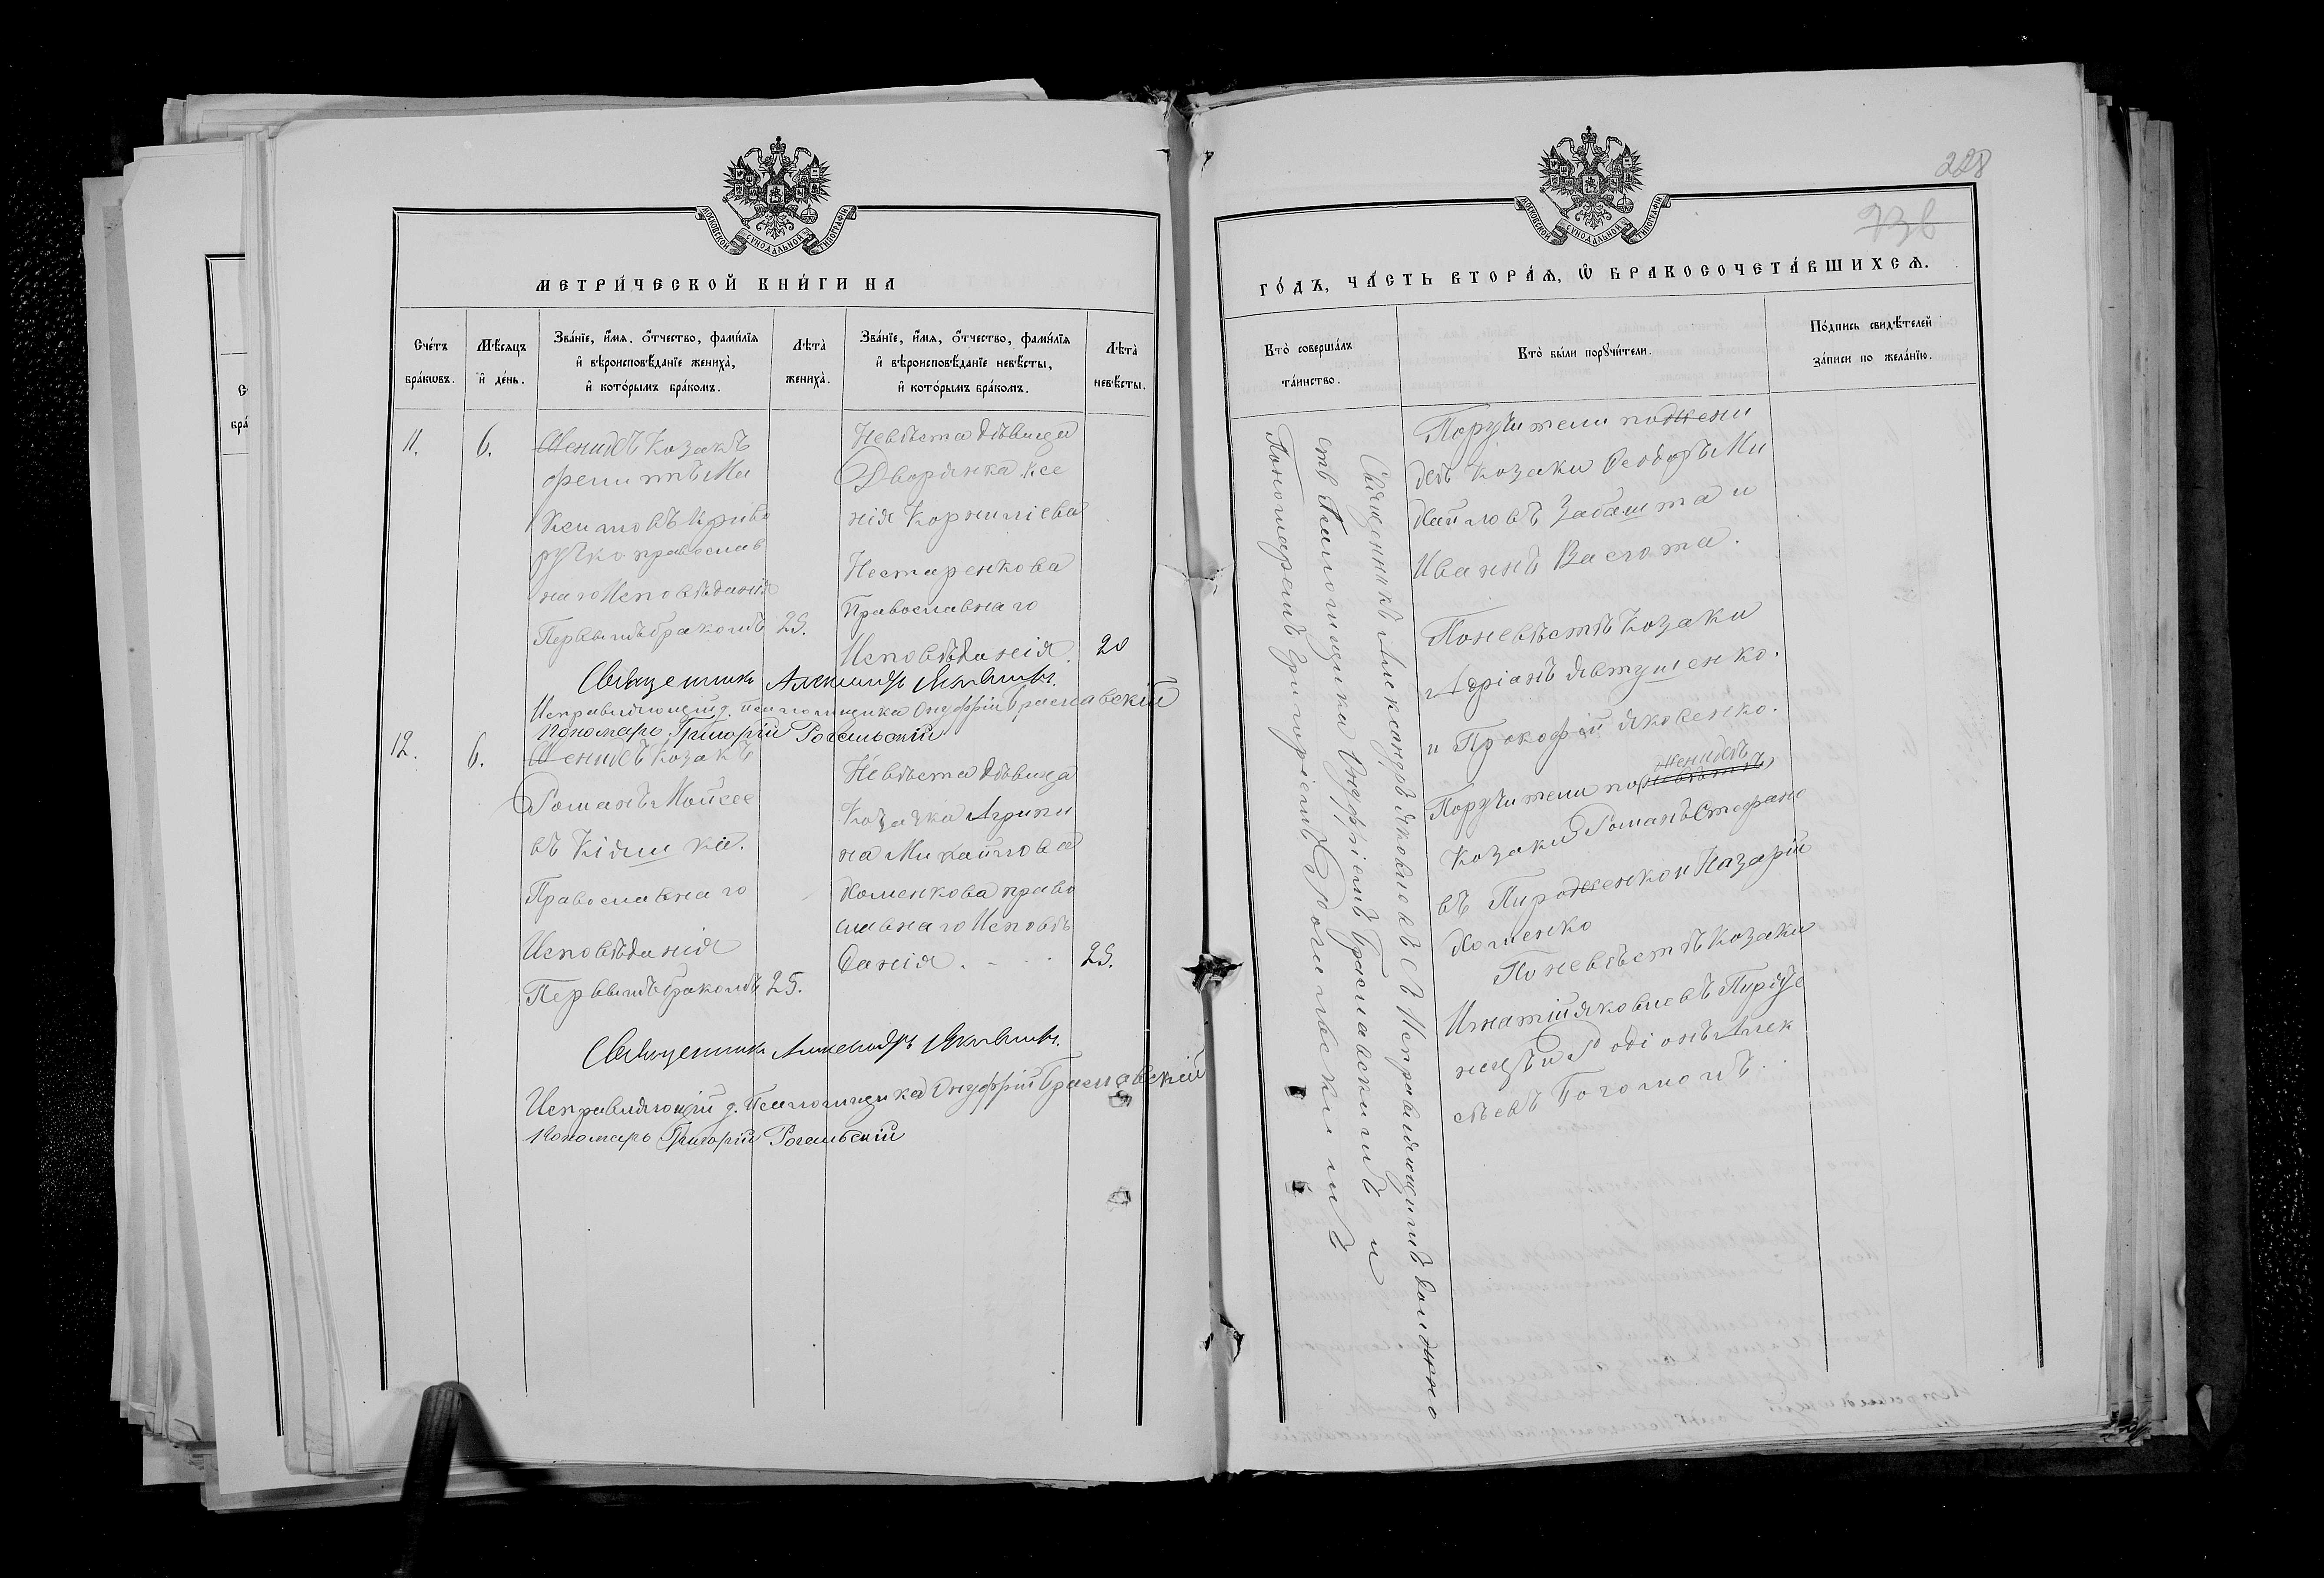 228
736
МОСКОВСКОЙ СѴНОДАЛЬНОЙ ТИПОГРАФІИ
МЕТРИ́ЧЕСКОЙ КНИ́ГИ НА
Сче́тъ бра́кѡвъ.
Мѣ́сяцъ и҆ де́нь.
Зва́нїе, и҆́мѧ, ѻ҆́тчество, фами́лїѧ
и҆ вѣроисповѣ́данїе жениха̀,
и҆ кото́рымъ бра́комъ.
Лѣ́та̀ жениха̀.
Зва́нїе, и҆́мѧ, ѻ҆́тчество, фами́лїѧ
и҆ вѣроисповѣ́данїе невѣ́сты,
и҆ кото́рымъ бра́комъ.
Лѣ́та̀ невѣ́сты.
11.
6.
Женихъ Козакъ
Ма
Ксимовъ Криво
ручко православ
наго Исповѣданія
Первымъ бракомъ
25.
Невѣста дѣвица
Дворянка Ксе
нія Корниліева
Нестаренкова
Православнаго
Исповѣданія.
20
Священникъ Александръ Яковлевъ.
Исправляющій д. псаломщика Онуфрій Браславскій
Пономарь Григорій Рогальскій
12.
6.
Женихъ Козакъ
Романъ Мойсее
въ Кіяшка.
Православнаго
Исповѣданія
Первымъ бракомъ
25.
Невѣста дѣвица
Козачка Агрипи
на Михайлова
Хоменкова право
славнаго Исповѣ
данія.
25.
Священникъ Александръ Яковлевъ.
Исправляющій д. Псаломщика Онуфрій Браславскій
Пономарь Григорій Рогальскій
МОСКОВСКОЙ СѴНОДАЛЬНОЙ ТИПОГРАФІИ
ГО́ДЪ, ЧА́СТЬ ВТОРА́Ѧ, Ѡ҆ БРАКОСОЧЕТА́ВШИХСѦ.
Кто̀ соверша́лъ та́инство.
Кто̀ бы́ли порꙋчи́тели.
По́дпись свидѣ́телей
за́писи по жела́нїю.
Священникъ Александръ Яковлевъ съ Исправляющимъ должно
сть Псаломщика Онуфріемъ Браславскимъ и
Пономаремъ Григоріемъ Рогальскимъ
Поручители по жени
хѣ козаки Ѳеодоръ Ми
хайловъ Забашта и
Иванъ Васюта.
По невѣстѣ козаки
Адріанъ Явтушенко.
и Прокофій Яковенко.
женихѣ
Поручители по невѣстѣ
козаки Романъ Стефано
въ Пироженко и Назарій
Хоменко
По невѣстѣ козаки
Игнатій Яковлевъ
и Родіонъ Алек
сѣевъ Богомолъ.